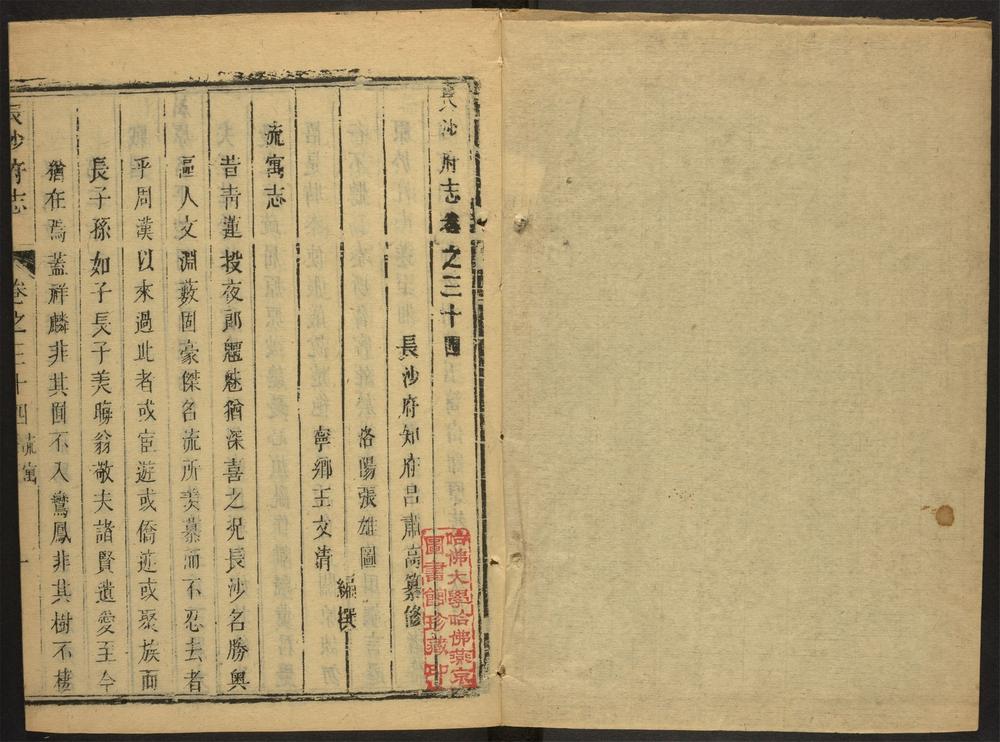 長沙府志卷之三十四
長沙府知府呂肅高纂修
洛陽張雄圖
寧鄉王文清
編撰
流寓志
昔青蓮投夜郎魑魅猶深喜之况長沙名勝輿
區人文淵藪固豪傑名流所羨慕而不忍去者
乎周漢以來過此者或宦遊或僑迹或聚族而
長子孫如子長子美晦翁敬夫諸賢遺愛至今
猶在焉蓋祥麟非其囿不入鸞鳳非其樹不棲
長沙府志
卷之三十四
流寓
一
哈佛大學哈佛燕京
圖書館珍藏印